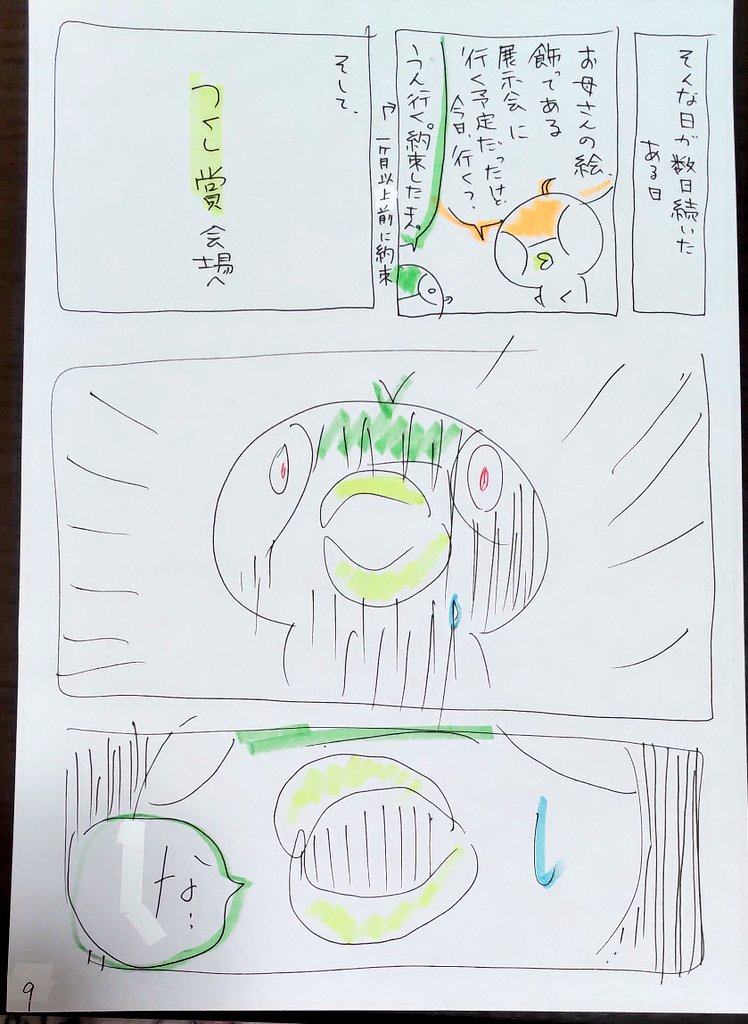 そんな日が数日続いた
ある日
お母さんの絵、
飾ってある
展示会に
行く予定だったけど、
今日、行く?
うん行く。約束したもん。
↑
一ヶ月以上前に約束
そして、
つくし賞会場へ
な…
9